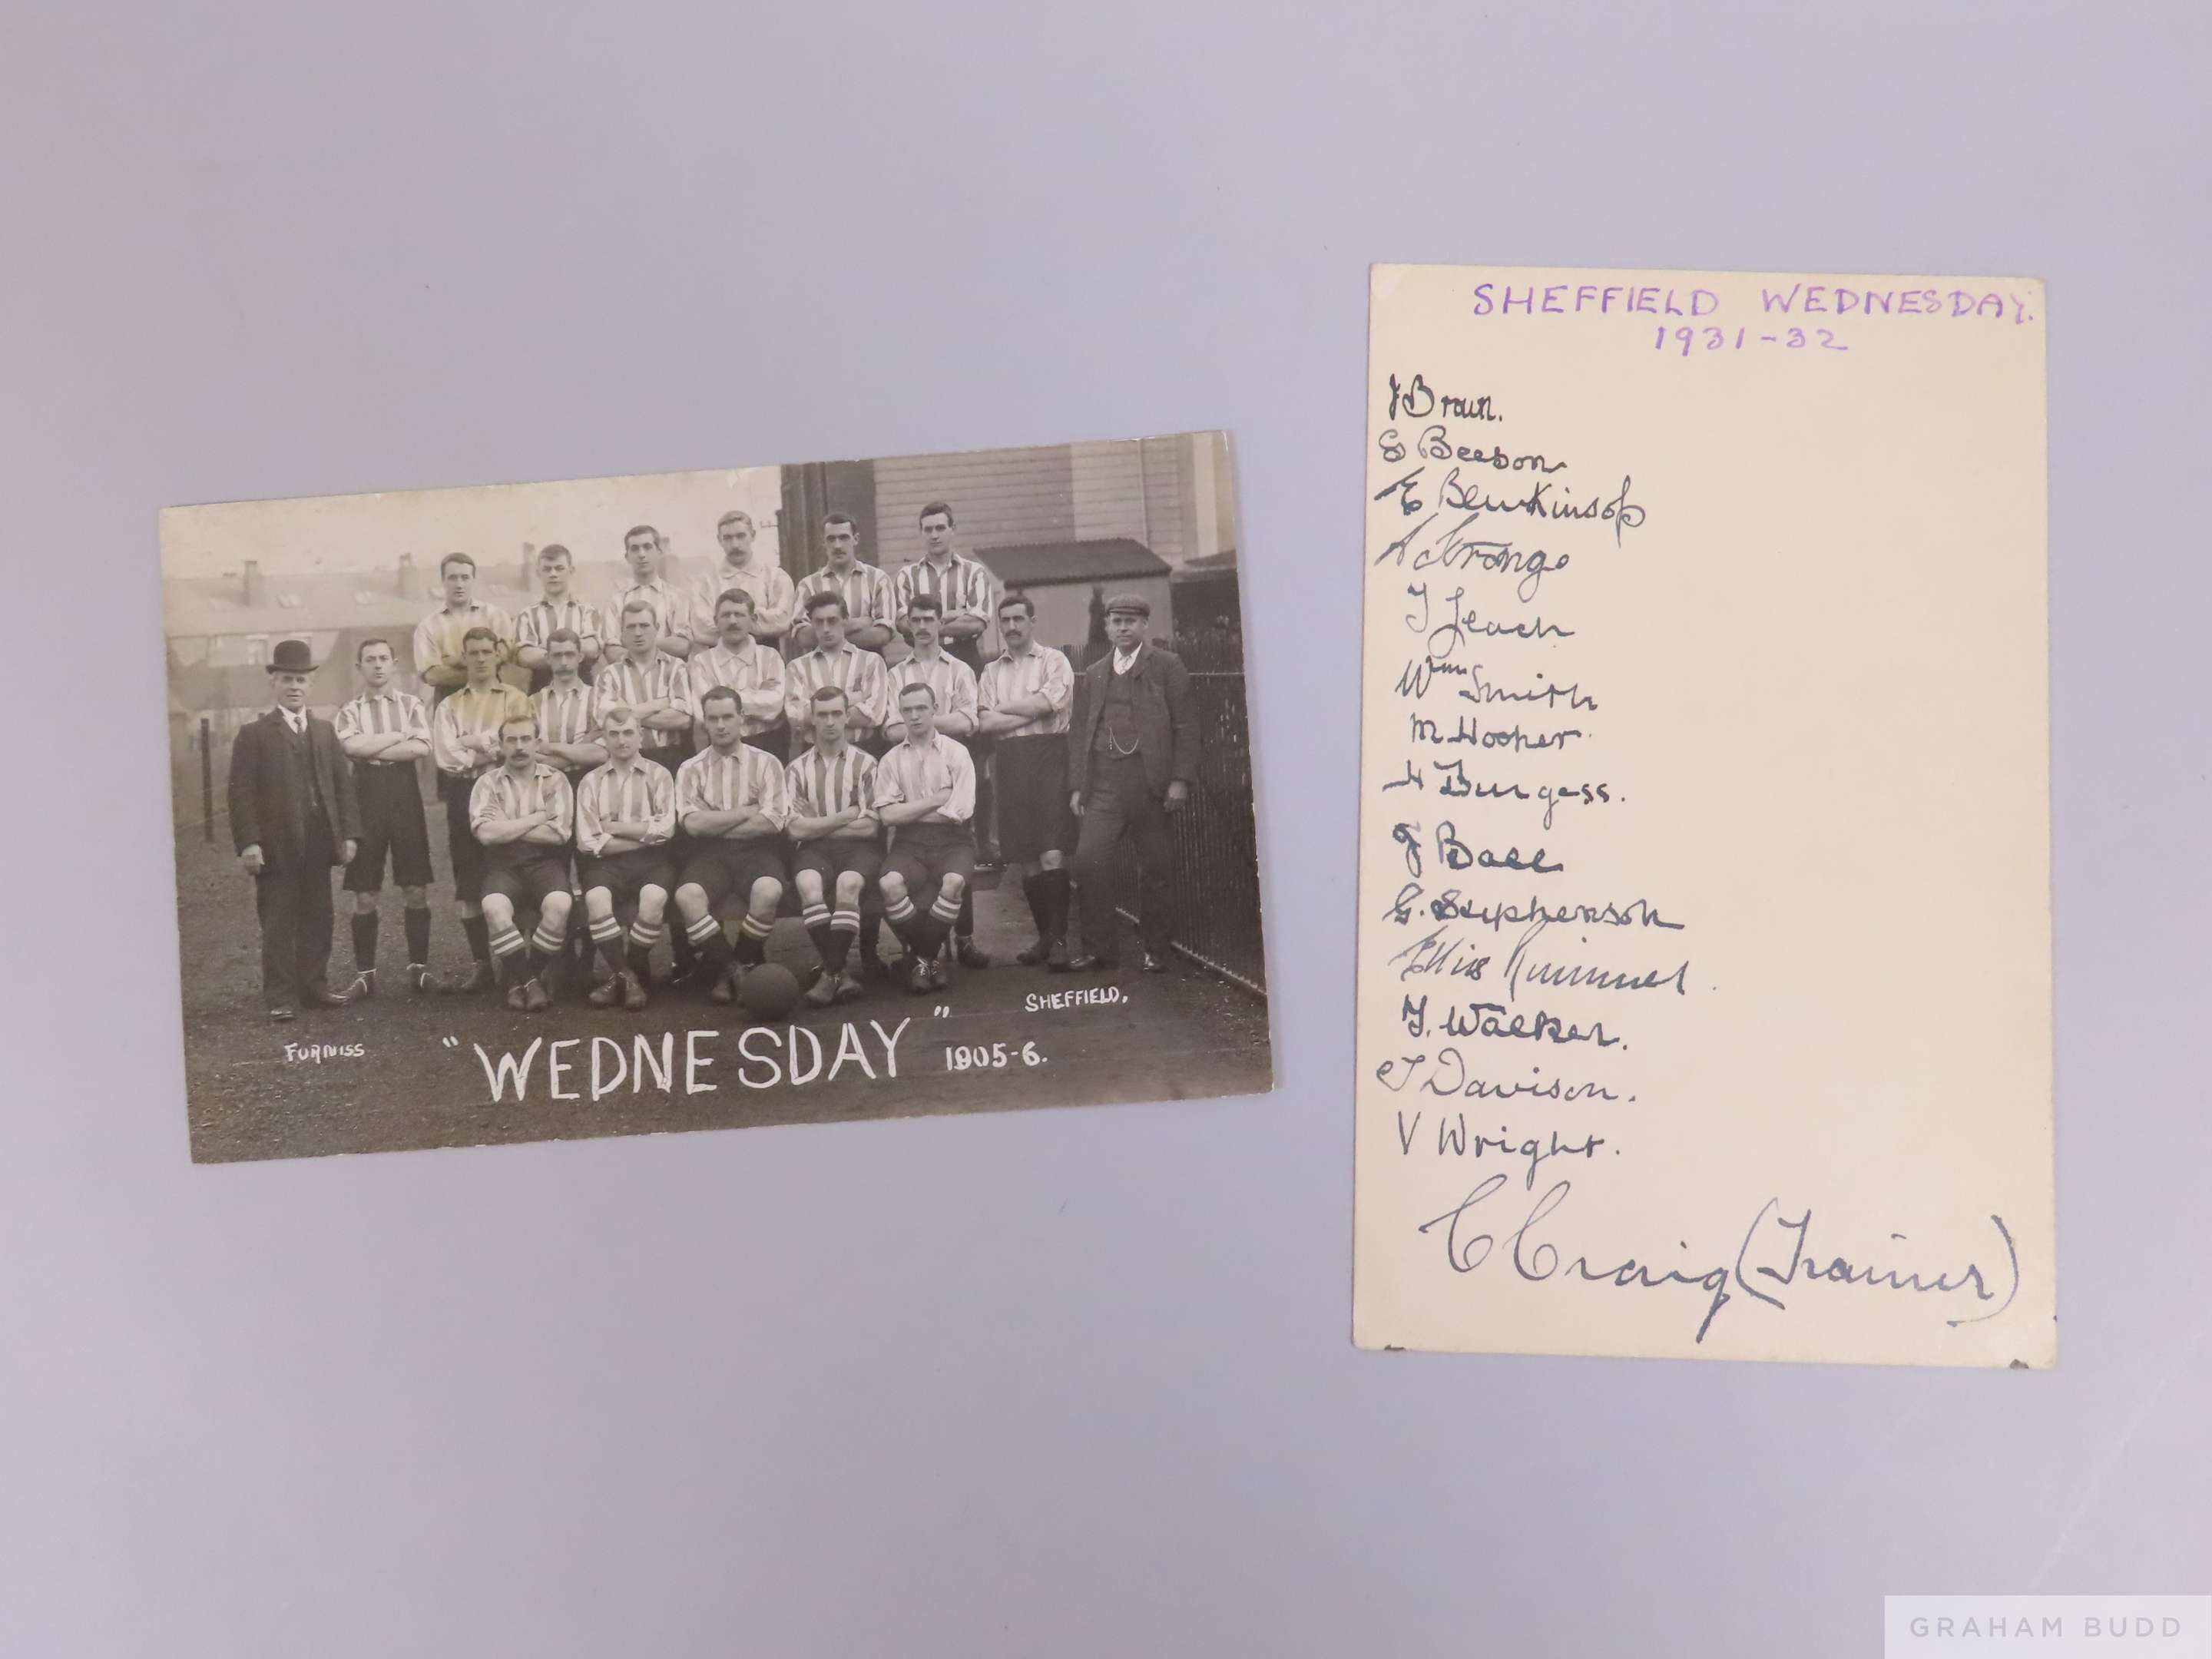 FURNISS
"WEDNESDAY" 1905-6.
SHEFFIELD.
SHEFFIELD WEDNESDAY.
1931-32
J Brown.
E Beeson
E Blenkinsop
A Strange
T Leach
Wm Smith
M Hooper.
H Burgess.
J Ball
G. Stephenson
Ellis Rimmer.
T. Walker.
T Davison.
V Wright.
C Craig (Trainer)
GRAHAM BUDD